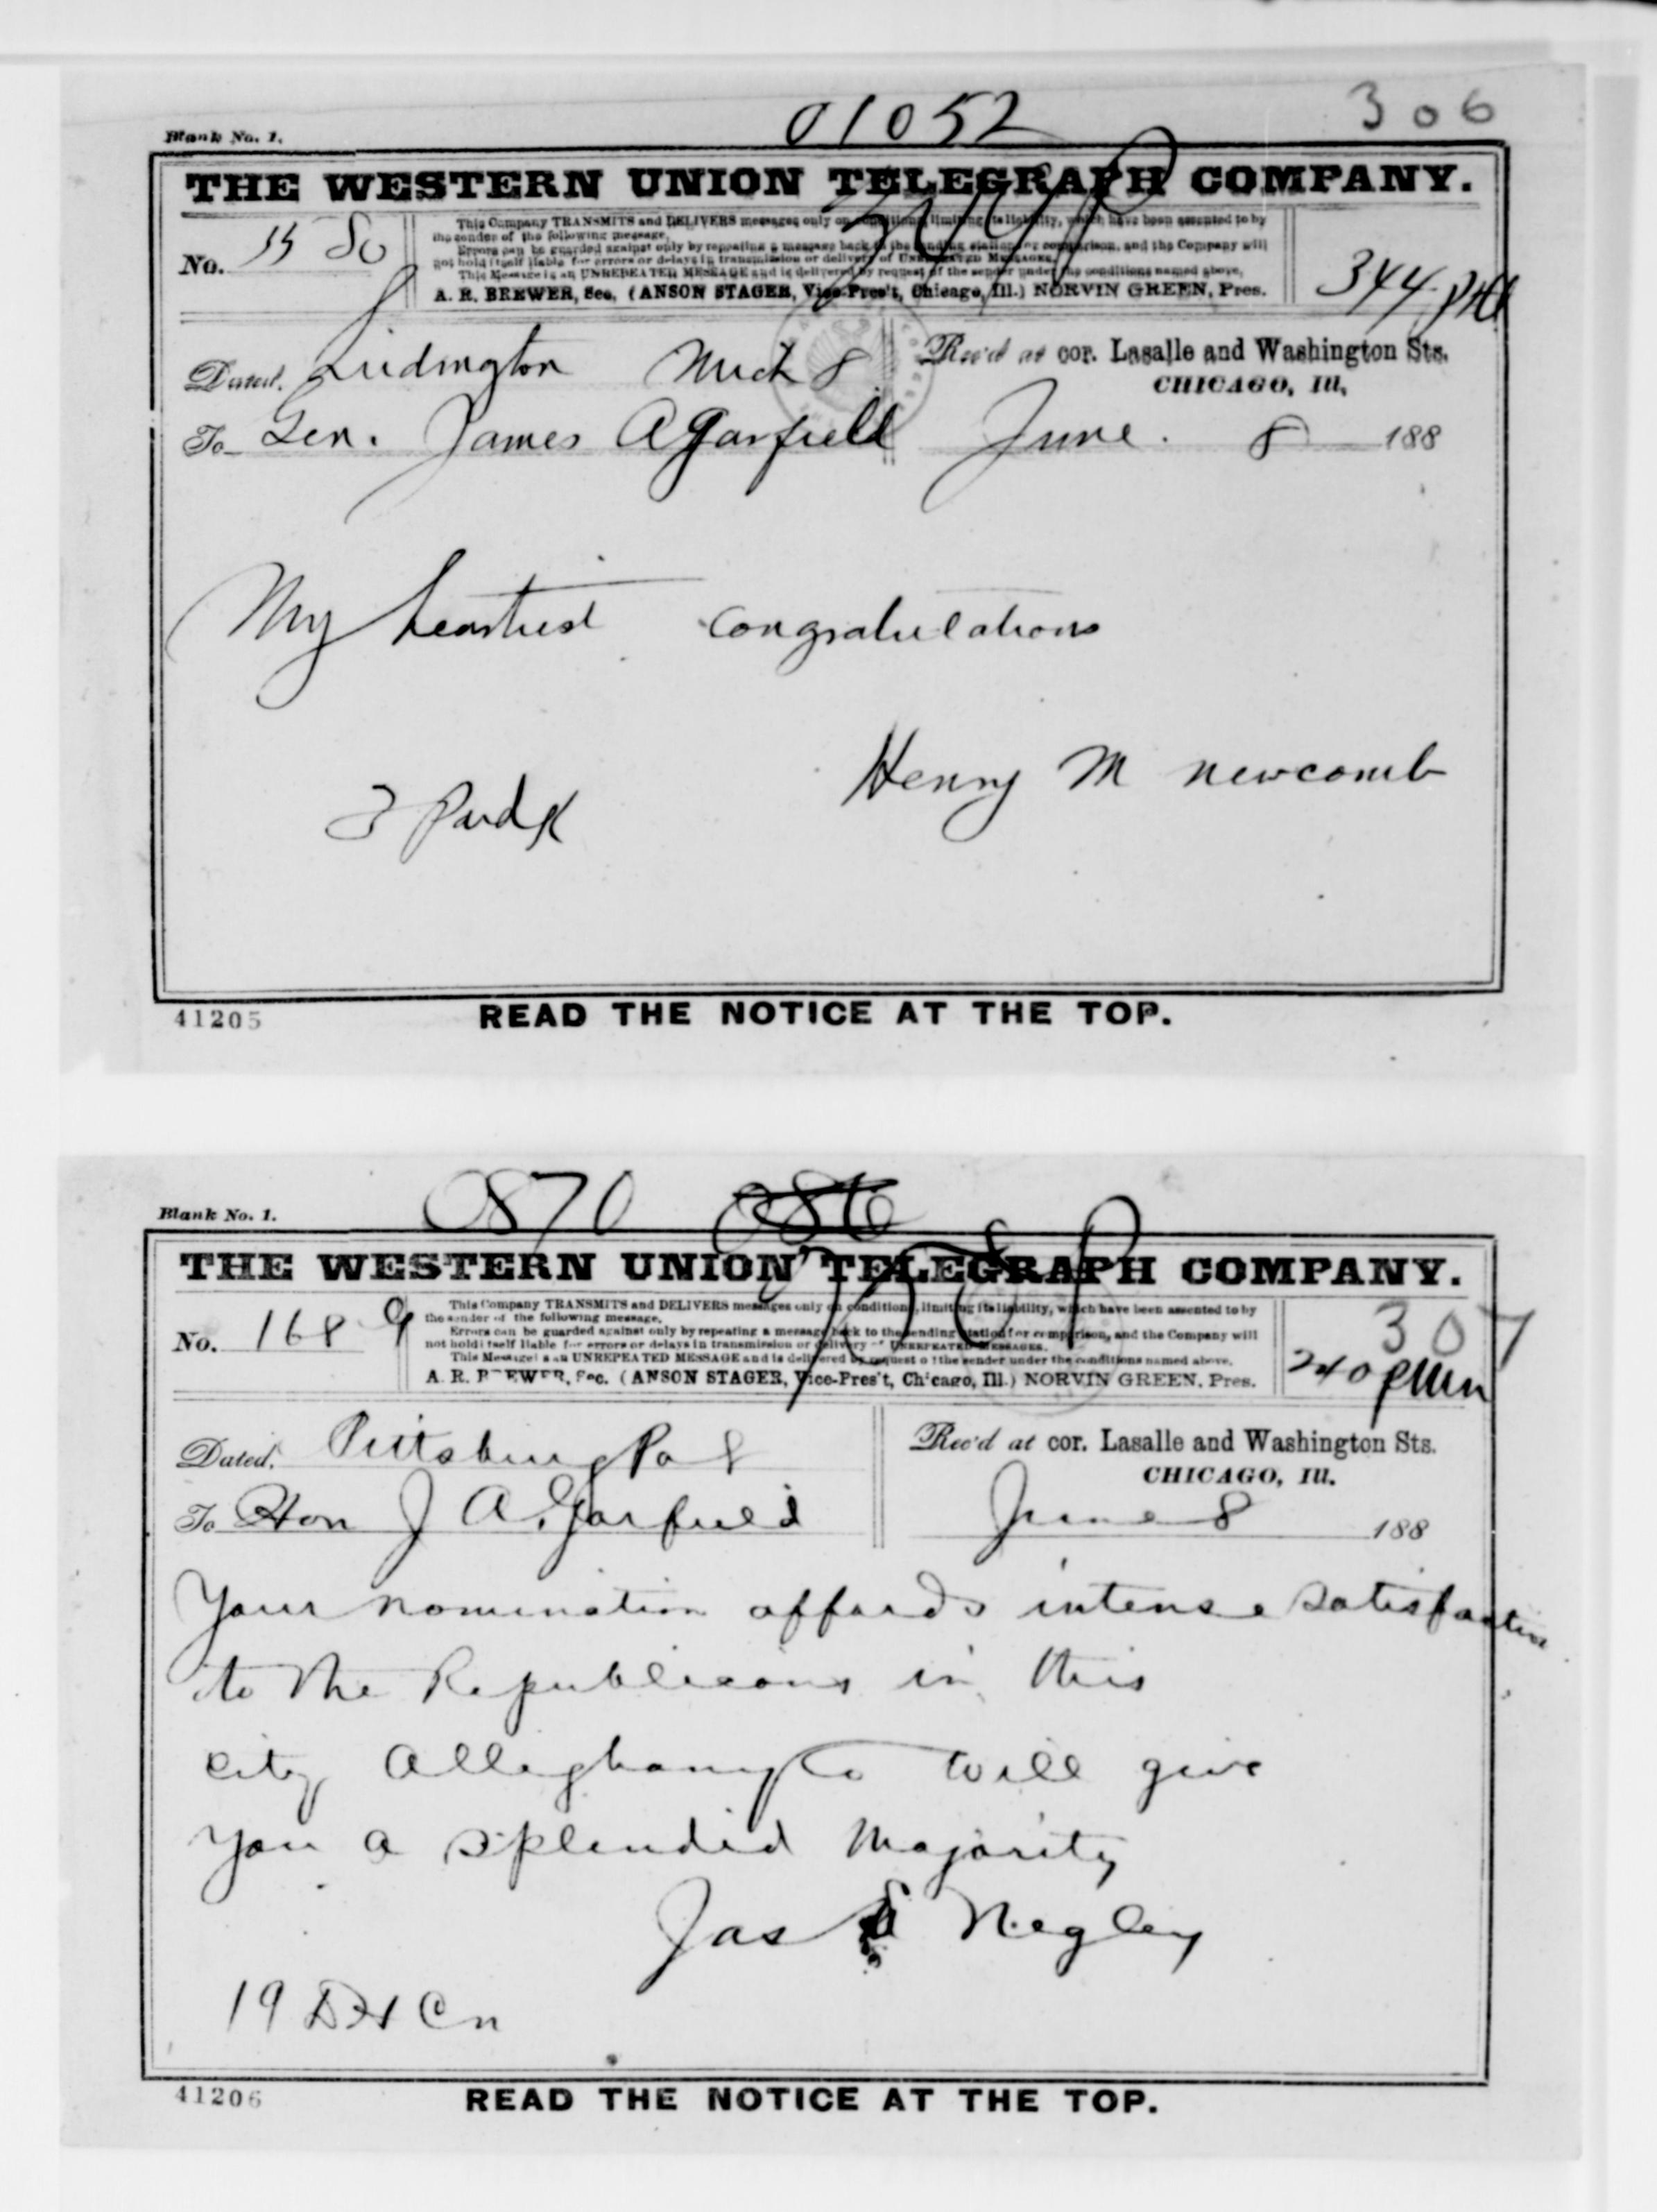 01052
306
Blank No. 1.
THE WESTERN UNION TELEGRAPH COMPANY.
No.
This Company TRANSMITS and DELIVERS messages only on conditions, limiting its liability, which have been assented to by
the sender of the following message.
Errors can be guarded against only by repeating a message back to the sending station for comparison, and the Company will
not hold itself liable for errors or delays in transmission or delivery of UNREPEATED MESSAGES.
This Message is an UNREPEATED MESSAGE and is delivered by request of the sender under the conditions named above.
A. R. BREWER, Sec. (ANSON STAGER, Vice-Pres't, Chicago, Ill.) NORVIN GREEN, Pres.
344
Dated, Ludington Mich 8
Rec'd at cor. Lasalle and Washington Sts.
CHICAGO, Ill.
To Gen. James A Garfield
June. 8 188
My heartiest congratulations
Henry M Newcomb
3 Paid
41205
READ THE NOTICE AT THE TOP.
0870
Blank No. 1.
THE WESTERN UNION TELEGRAPH COMPANY.
No. 168
This Company TRANSMITS and DELIVERS messages only on conditions, limiting its liability, which have been assented to by
the sender of the following message.
Errors can be guarded against only by repeating a message back to the sending station for comparison, and the Company will
not hold itself liable for errors or delays in transmission or delivery of UNREPEATED MESSAGES.
This Message is an UNREPEATED MESSAGE and is delivered by request of the sender under the conditions named above.
A. R. BREWER, Sec. (ANSON STAGER, Vice-Pres't, Chicago, Ill.) NORVIN GREEN, Pres.
307
240
Dated, Pittsburg Pa 8
Rec'd at cor. Lasalle and Washington Sts.
CHICAGO, Ill.
To Hon J A. Garfield
June 8 188
Your nomination affords intense satisfaction
to the Republicans in this
city Alleghany Co will give
you a splendid Majority
Jas S Negley
19
41206
READ THE NOTICE AT THE TOP.